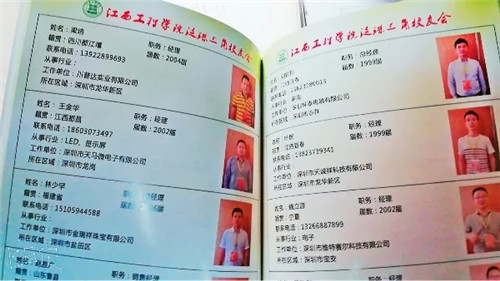 江西工程学院泛珠三角校友会
姓名：梁
籍贯：四川都江堰 职务：经理
联系电话：13922899693 届数：2004届
从事行业：
工作单位：川普达实业有限公司
所在区域：深圳市龙华新区
姓名：王金华
籍贯：江西都昌 职务：经理
联系电话：18603073497 届数：2002届
从事行业：LED、显示屏
工作单位：深圳市天马微电子有限公司
所在区域：深圳市龙岗
姓名：林少宇
籍贯：福建省 职务：经理
联系电话：15105944588 届数：
从事行业：
工作单位：深圳市金瑞祥珠宝有限公司
所在区域：深圳市盐田区
籍贯：山东曹县 职务：销售经理
江西工程学院泛珠三角校友会
职务：总经理
届数：1999届
所在区域：深圳市
职务：经理
联系电话：13823739341 届数：1999届
从事行业：
工作单位：深圳市天诚祥科技有限公司
所在区域：深圳市龙华新区
籍贯：宁夏 职务：经理
联系电话：13266887899 届数：2002届
从事行业：电子
工作单位：深圳市维特赛尔科技有限公司
所在区域：深圳市宝安